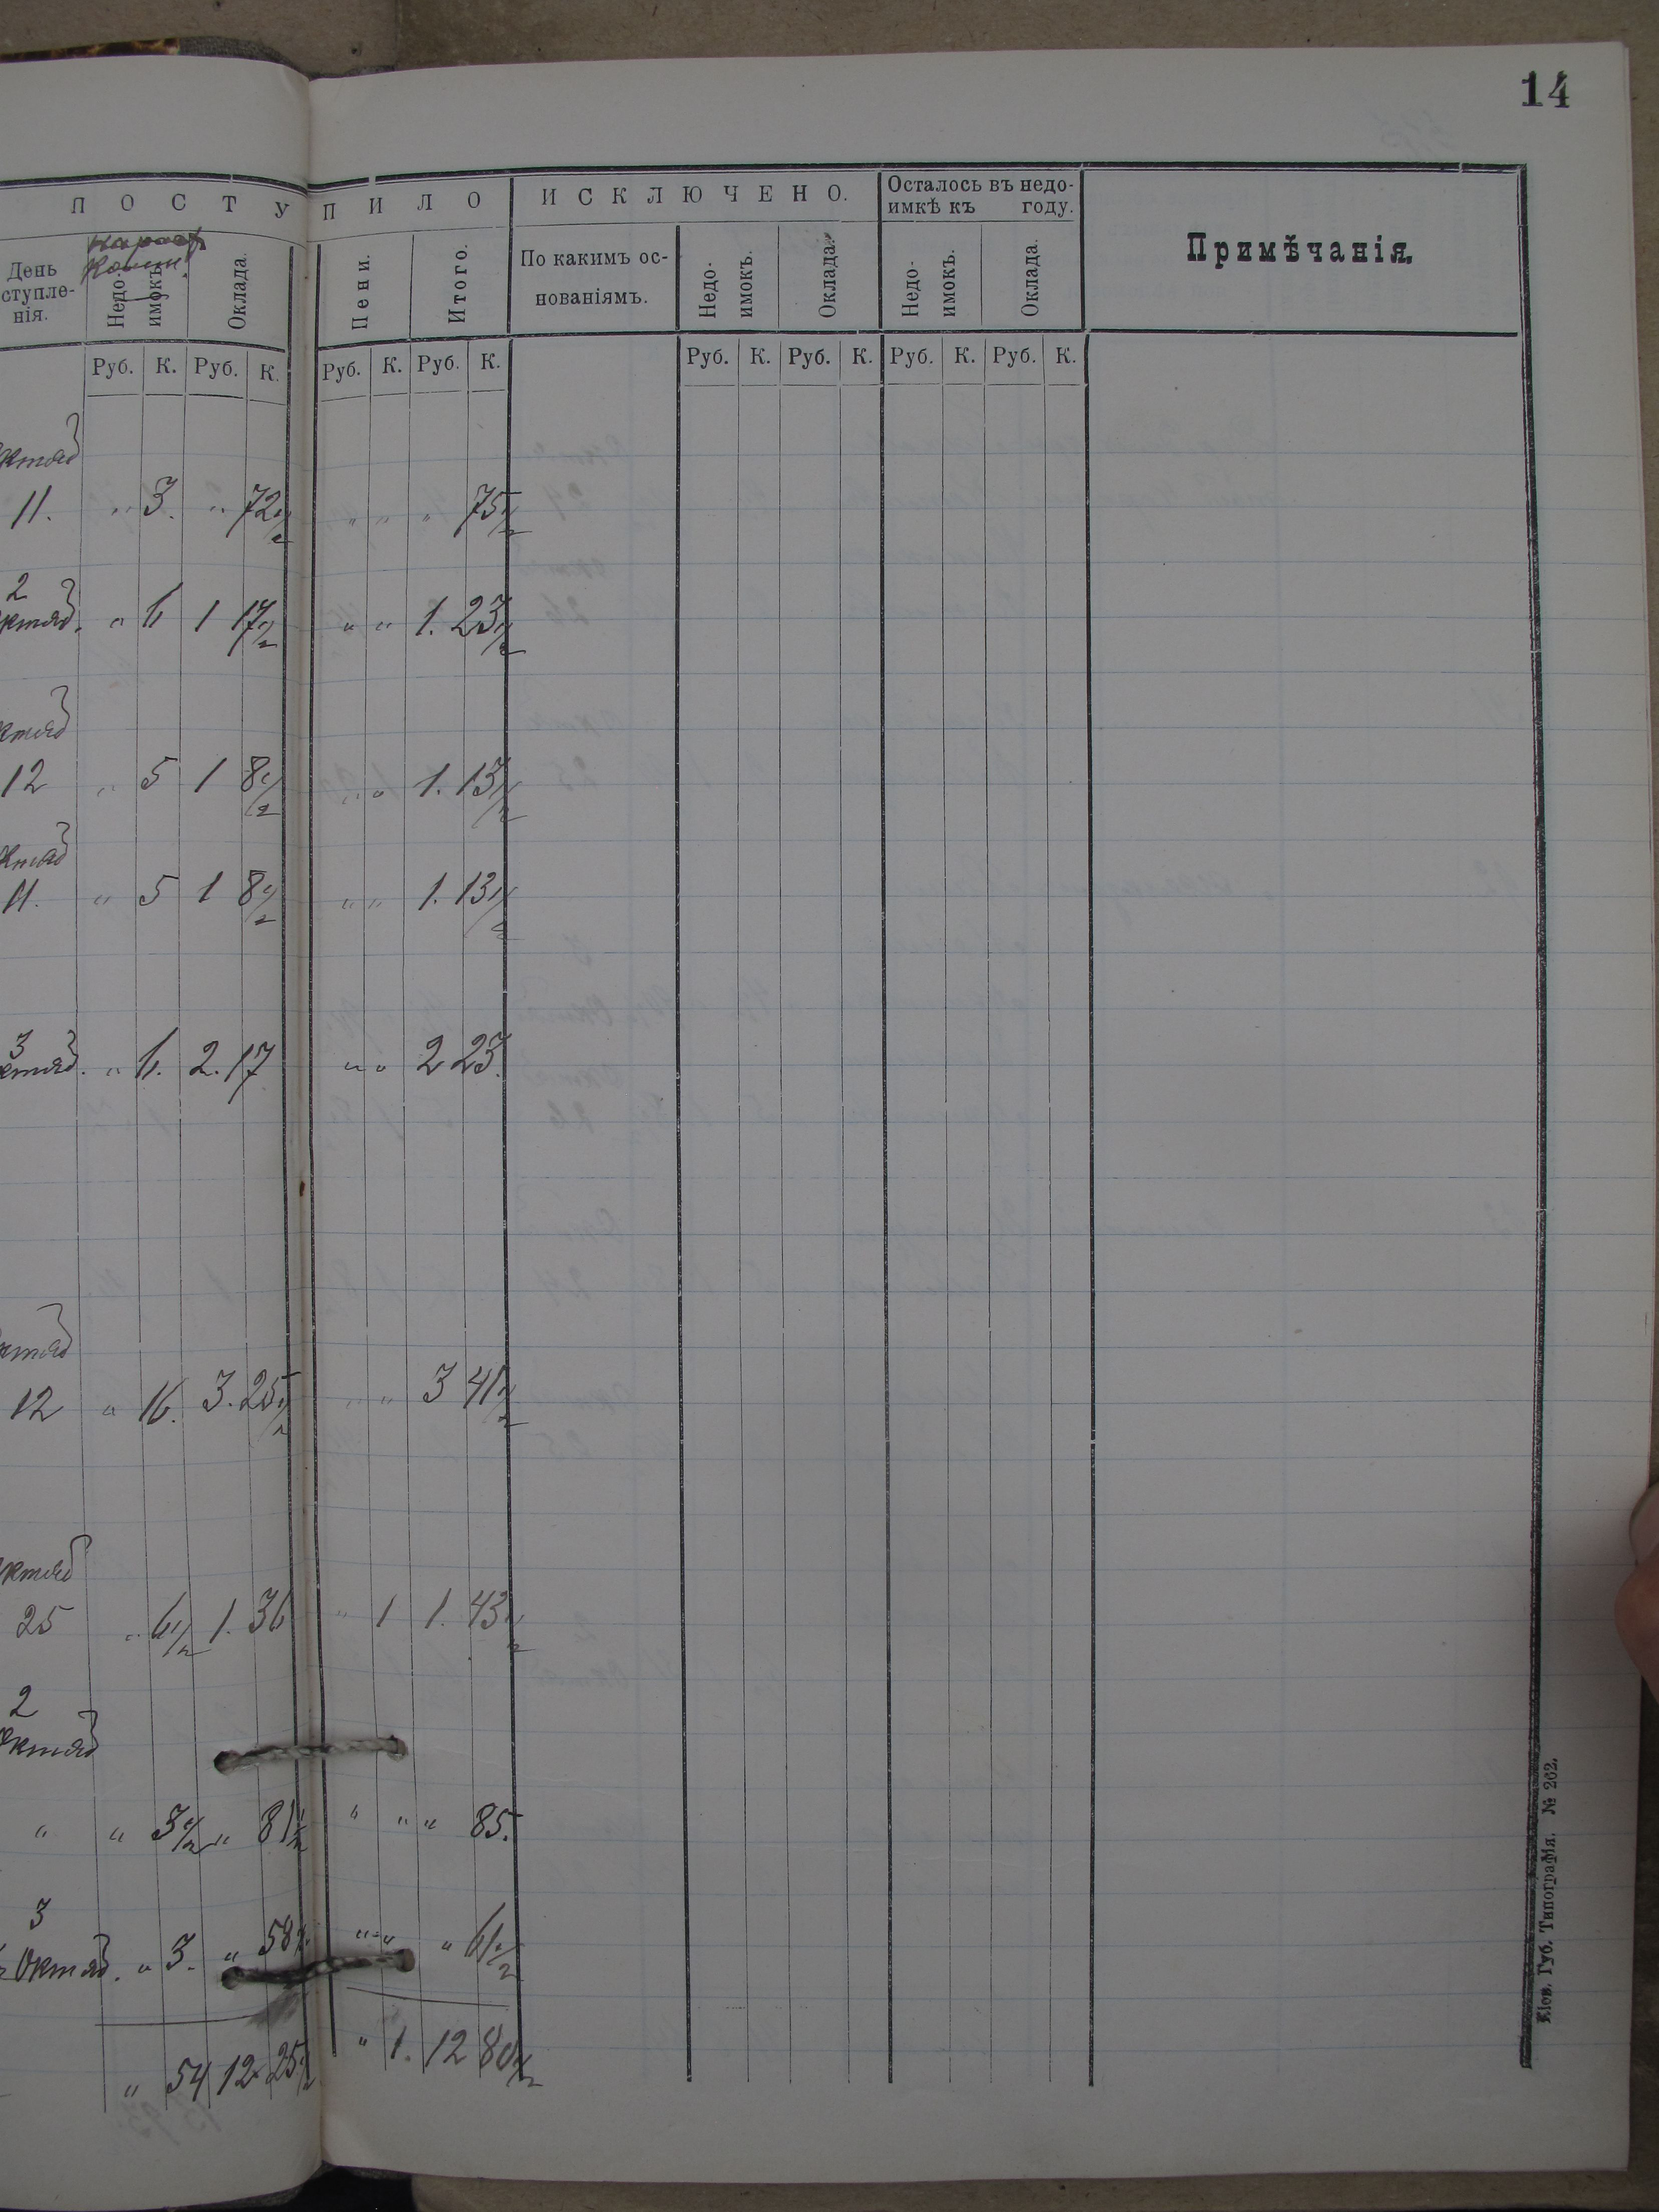 14
ПОСТУПИЛО
ИСКЛЮЧЕНО.
Осталось въ недо-
имкѣ къ году.
Примѣчанія.
День
ступле-
нія.
Недо-
имокъ.
Оклада.
Пени.
Итого.
По какимъ ос-
нованіямъ.
Недо-
имокъ.
Оклада.
Недо-
имокъ.
Оклада.
Руб. К. Руб. К. Руб. К. Руб. К. Руб. К. Руб. К. Руб. К. Руб. К.
ктяб
11. " 3. " 72 1/2 " " " 75 1/2
2
ктяб. " 6 1 17 1/2 " " 1. 23 1/2
ктяб
12 " 5 1 8 1/2 " " 1. 13 1/2
ктяб
11. " 5 1 8 1/2 " " 1. 13 1/2
3
ктяб. " 6. 2. 17 " " 2 23.
ктяб
12 " 16. 3. 25 1/2 " " 3 41 1/2
ктяб
25 " 6 1/2 1. 36 " 1 1. 43 1/2
2
Октяб
" " 3 1/2 " 81 1/2 " " " 85.
3
Октяб. " 3. " 58 1/2 " " " 61 1/2
" 54 12 25 1/2 " 1. 12 80 1/2
Кіев. Губ. Типографія. № 262.